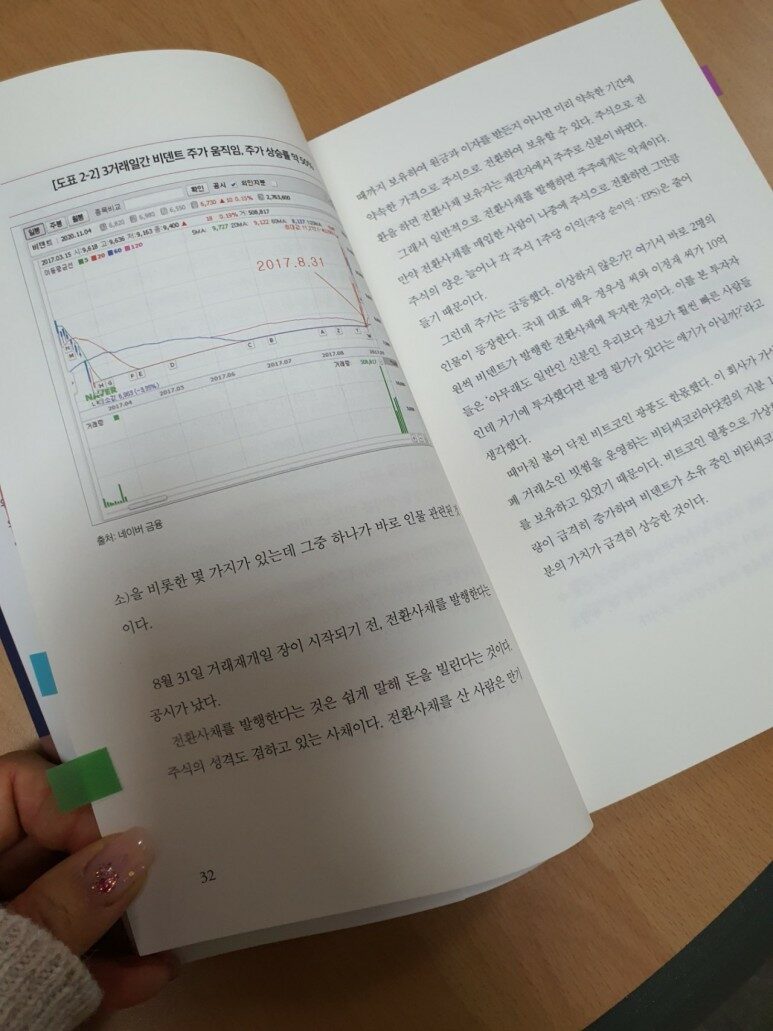 [도표 2-2] 3거래일간 비덴트 주가 움직임, 주가 상승률 약 50%
일봉 주봉 월봉 종목비교 확인 공시 외인지분
비덴트 2020.11.04 6,820 6,980 6,550 6,730 ▲10 0.21% 2,763,600
2017.03.15 시:9,618 고:9,636 저:9,163 종:9,400 ▲ 18 0.19% 거:508,817
이동평균선 5 20 60 120 5MA: 9,727 20MA: 9,122 60MA:
2017.8.31
H
M
M G
F E
D
C
B
A
Z
T
W
NAVER
2017.04 2017.05 2017.06 2017.07 2017.08
거래량
거래량
출처: 네이버 금융
소)을 비롯한 몇 가지가 있는데 그중 하나가 바로 인물 관련된
이다.
8월 31일 거래재개일 장이 시작되기 전, 전환사채를 발행한다는
공시가 났다.
전환사채를 발행한다는 것은 쉽게 말해 돈을 빌린다는 것이다.
주식의 성격도 겸하고 있는 사채이다. 전환사채를 산 사람은 만기
32
때까지 보유하여 원금과 이자를 받든지 아니면 미리 약속한 기간에
약속한 가격으로 주식으로 전환하여 보유할 수 있다. 주식으로 전
환을 하면 전환사채 보유자는 채권자에서 주주로 신분이 바뀐다.
그래서 일반적으로 전환사채를 발행하면 주주에게는 악재이다.
만약 전환사채를 매입한 사람이 나중에 주식으로 전환하면 그만큼
주식의 양은 늘어나 각 주식 1주당 이익(주당 순이익 : EPS)은 줄어
들기 때문이다.
그런데 주가는 급등했다. 이상하지 않은가? 여기서 바로 2명의
인물이 등장한다. 국내 대표 배우 정우성 씨와 이정재 씨가 10억
원씩 비덴트가 발행한 전환사채에 투자한 것이다. 이를 본 투자자
들은 '아무래도 일반인 신분인 우리보다 정보가 훨씬 빠른 사람들
인데 거기에 투자했다면 분명 뭔가가 있다는 얘기가 아닐까?'라고
생각했다.
때마침 불어 닥친 비트코인 광풍도 한몫했다. 이 회사가 가상
폐 거래소인 빗썸을 운영하는 비티씨코리아닷컴의 지분
를 보유하고 있었기 때문이다. 비트코인 열풍으로 가상
량이 급격히 증가하며 비덴트가 소유 중인 비티씨코
분의 가치가 급격히 상승한 것이다.